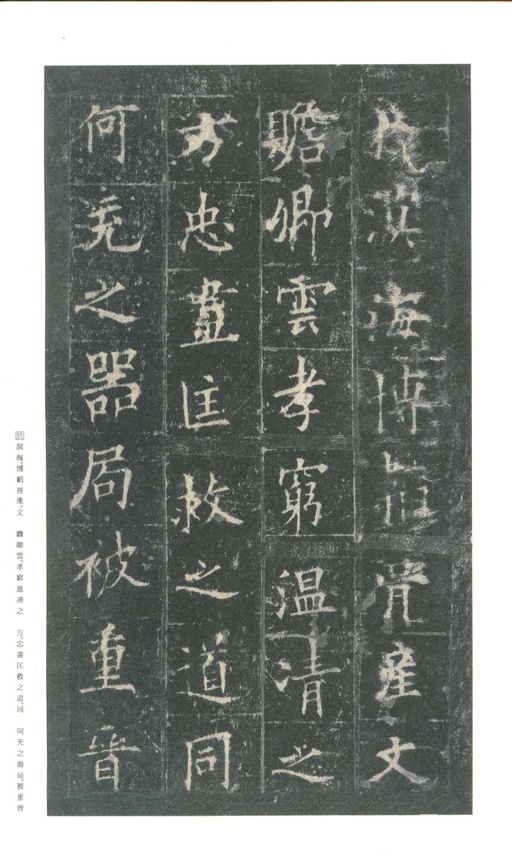 溟海博胥產文
贍卿雲孝窮溫清之
方忠盡匡救之道同
何充之器局被重晉
溟海博胥產文 贍卿雲孝窮溫凊之 方忠盡匡救之道同 何充之器局被重晉